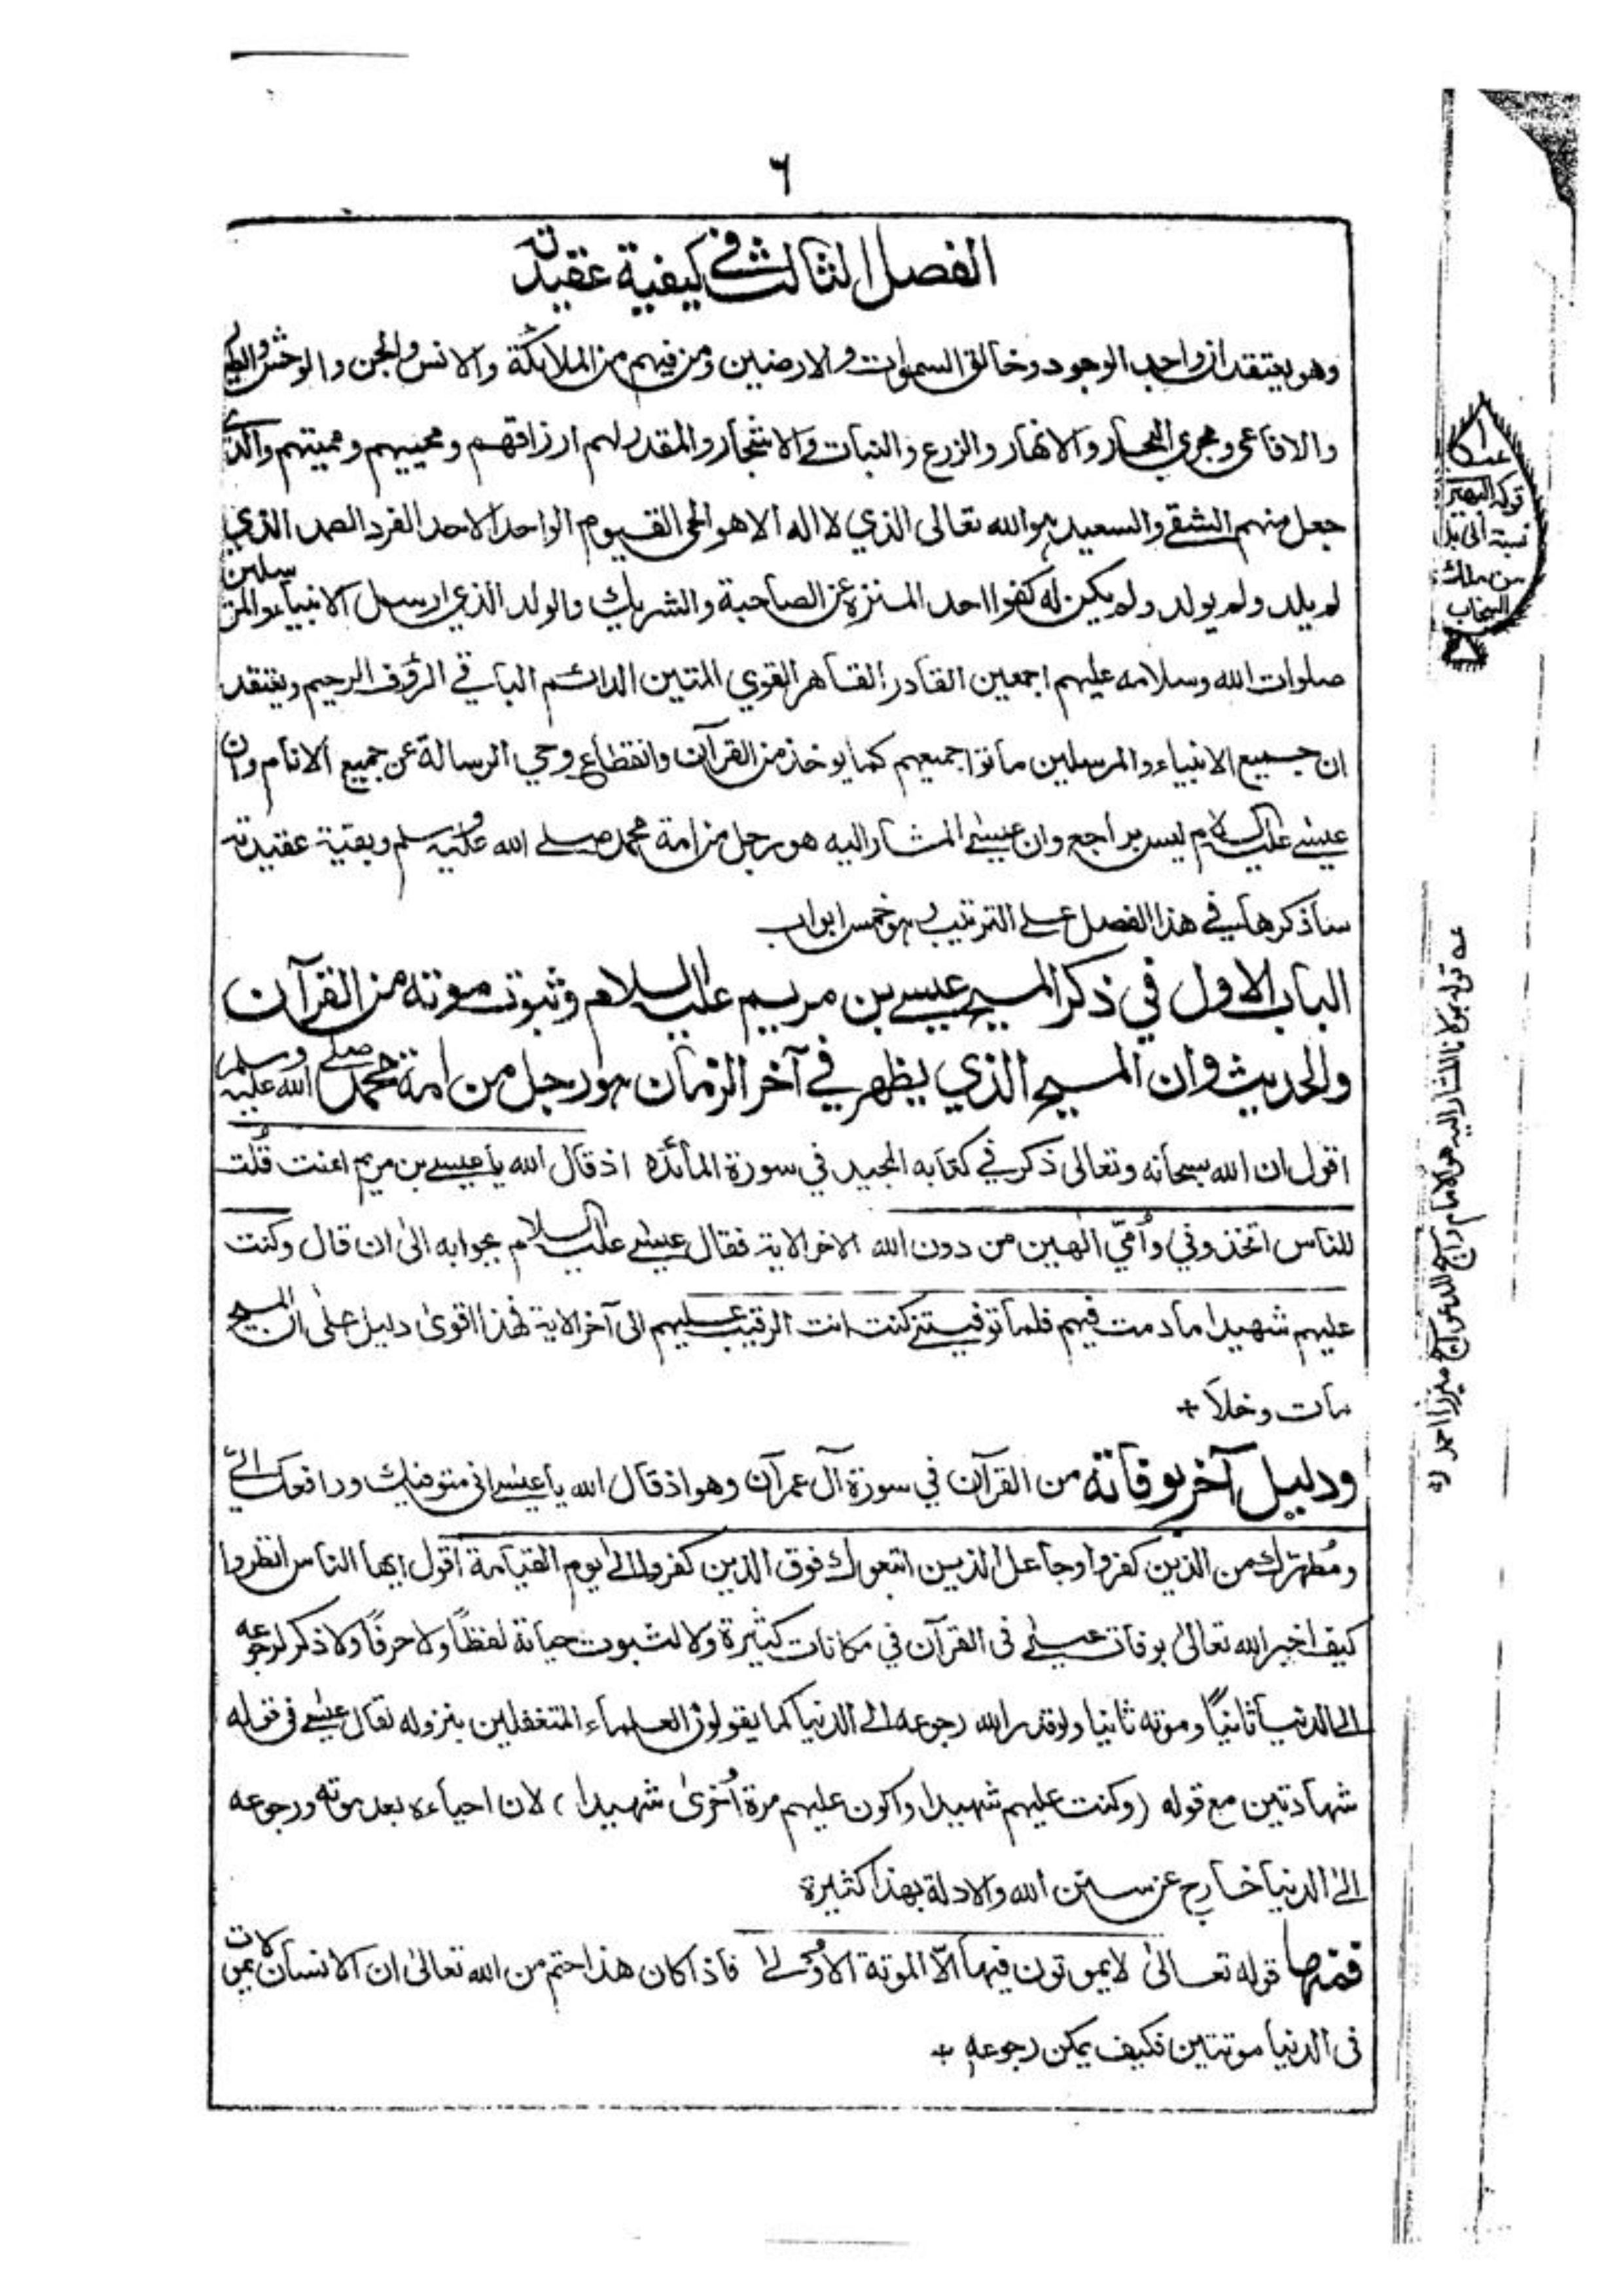 ٦
الفصل الثالث في كيفية عقيدته
وهو يعتقد ان واجب الوجود وخالق السموات والارضين ومن فيهم من الملائكة والانس والجن والوحش والطير
والافاعى ومجرى البحار والانهار والزرع والنبات والاشجار والمقدر لهم ارزاقهم ومحييهم ومميتهم والذي
جعل منهم الشقي والسعيد هو الله تعالى الذي لا اله الا هو الحى القيوم الواحد الاحد الفرد الصمد الذي
لم يلد ولم يولد ولم يكن له كفوا احد المنزه عن الصاحبة والشريك والولد الذي ارسل الانبياء والمرسلين
صلوات الله وسلامه عليهم اجمعين القادر القاهر القوي المتين الدائم الباقي الرؤف الرحيم ويعتقد
ان جميع الانبياء والمرسلين ماتوا جميعهم كما يوخذ من القرآن وانقطاع وحي الرسالة عن جميع الانام وان
عيسى عليه السلام ليس براجع وان عيسى المشار اليه هو رجل من امة محمد صلے الله عليه وسلم وبقية عقيدته
سأذكرها في هذا الفصل علے الترتيب هو خمس ابواب
الباب الاول في ذكر المسيح عيسے بن مريم عليه السلام وثبوت موته من القرآن
والحديث وان المسيح الذي يظهر في آخر الزمان هو رجل من امة محمد صلے الله عليه وسلم
اقول ان الله سبحانه وتعالى ذكر في كتابه المجيد في سورة المائدة اذ قال الله يا عيسے بن مريم اءنت قُلت
للناس اتخذوني وأُمّي الهين من دون الله الاخر الاية فقال عيسے عليه السلام بجوابه الىٰ ان قال وكنت
عليهم شهيدا ما دمت فيهم فلما توفيتنے كنت انت الرقيب عليهم الى آخر الاية فهذا اقوىٰ دليل علىٰ ان المسيح
مات وخلا +
ودليل آخر بوفاته من القرآن في سورة آل عمرآن وهو اذ قال الله يا عيسے انى متوفيك ورافعك الىّ
ومُطهّرك من الذين كفروا وجاعل الذين اتبعوك فوق الذين كفروا الے يوم القيامة اقول ايها الناس انظروا
كيف اخبر الله تعالىٰ بوفات عيسے فى القرآن في مكانات كثيرة ولا لثبوت حياته لفظاً ولا حرفاً ولا ذكر لرجوعه
الے الدنيا ثانياً وموته ثانيا ولو قدر الله رجوعه الے الدنيا كما يقولون العلماء المتغفلين بنزوله لقال عيسے في قوله
شهادتين مع قوله (وكنت عليهم شهيدا واكون عليهم مرة أُخرىٰ شهيدا) لان احياءه بعد موته ورجوعه
الىٰ الدنيا خارج عن سنن الله والادلة بهذا كثيرة
فمنها قوله تعالىٰ لا يموتون فيها الّا الموتة الاُولے فاذا كان هذا حتم من الله تعالىٰ ان الانسان لا يموت
فى الدنيا موتتين فكيف يمكن رجوعه +
قوله
نسبة الى بلد
من ملك
البنجاب
عه قوله مولانا المشار اليه هو الامام
ميرزا احمد